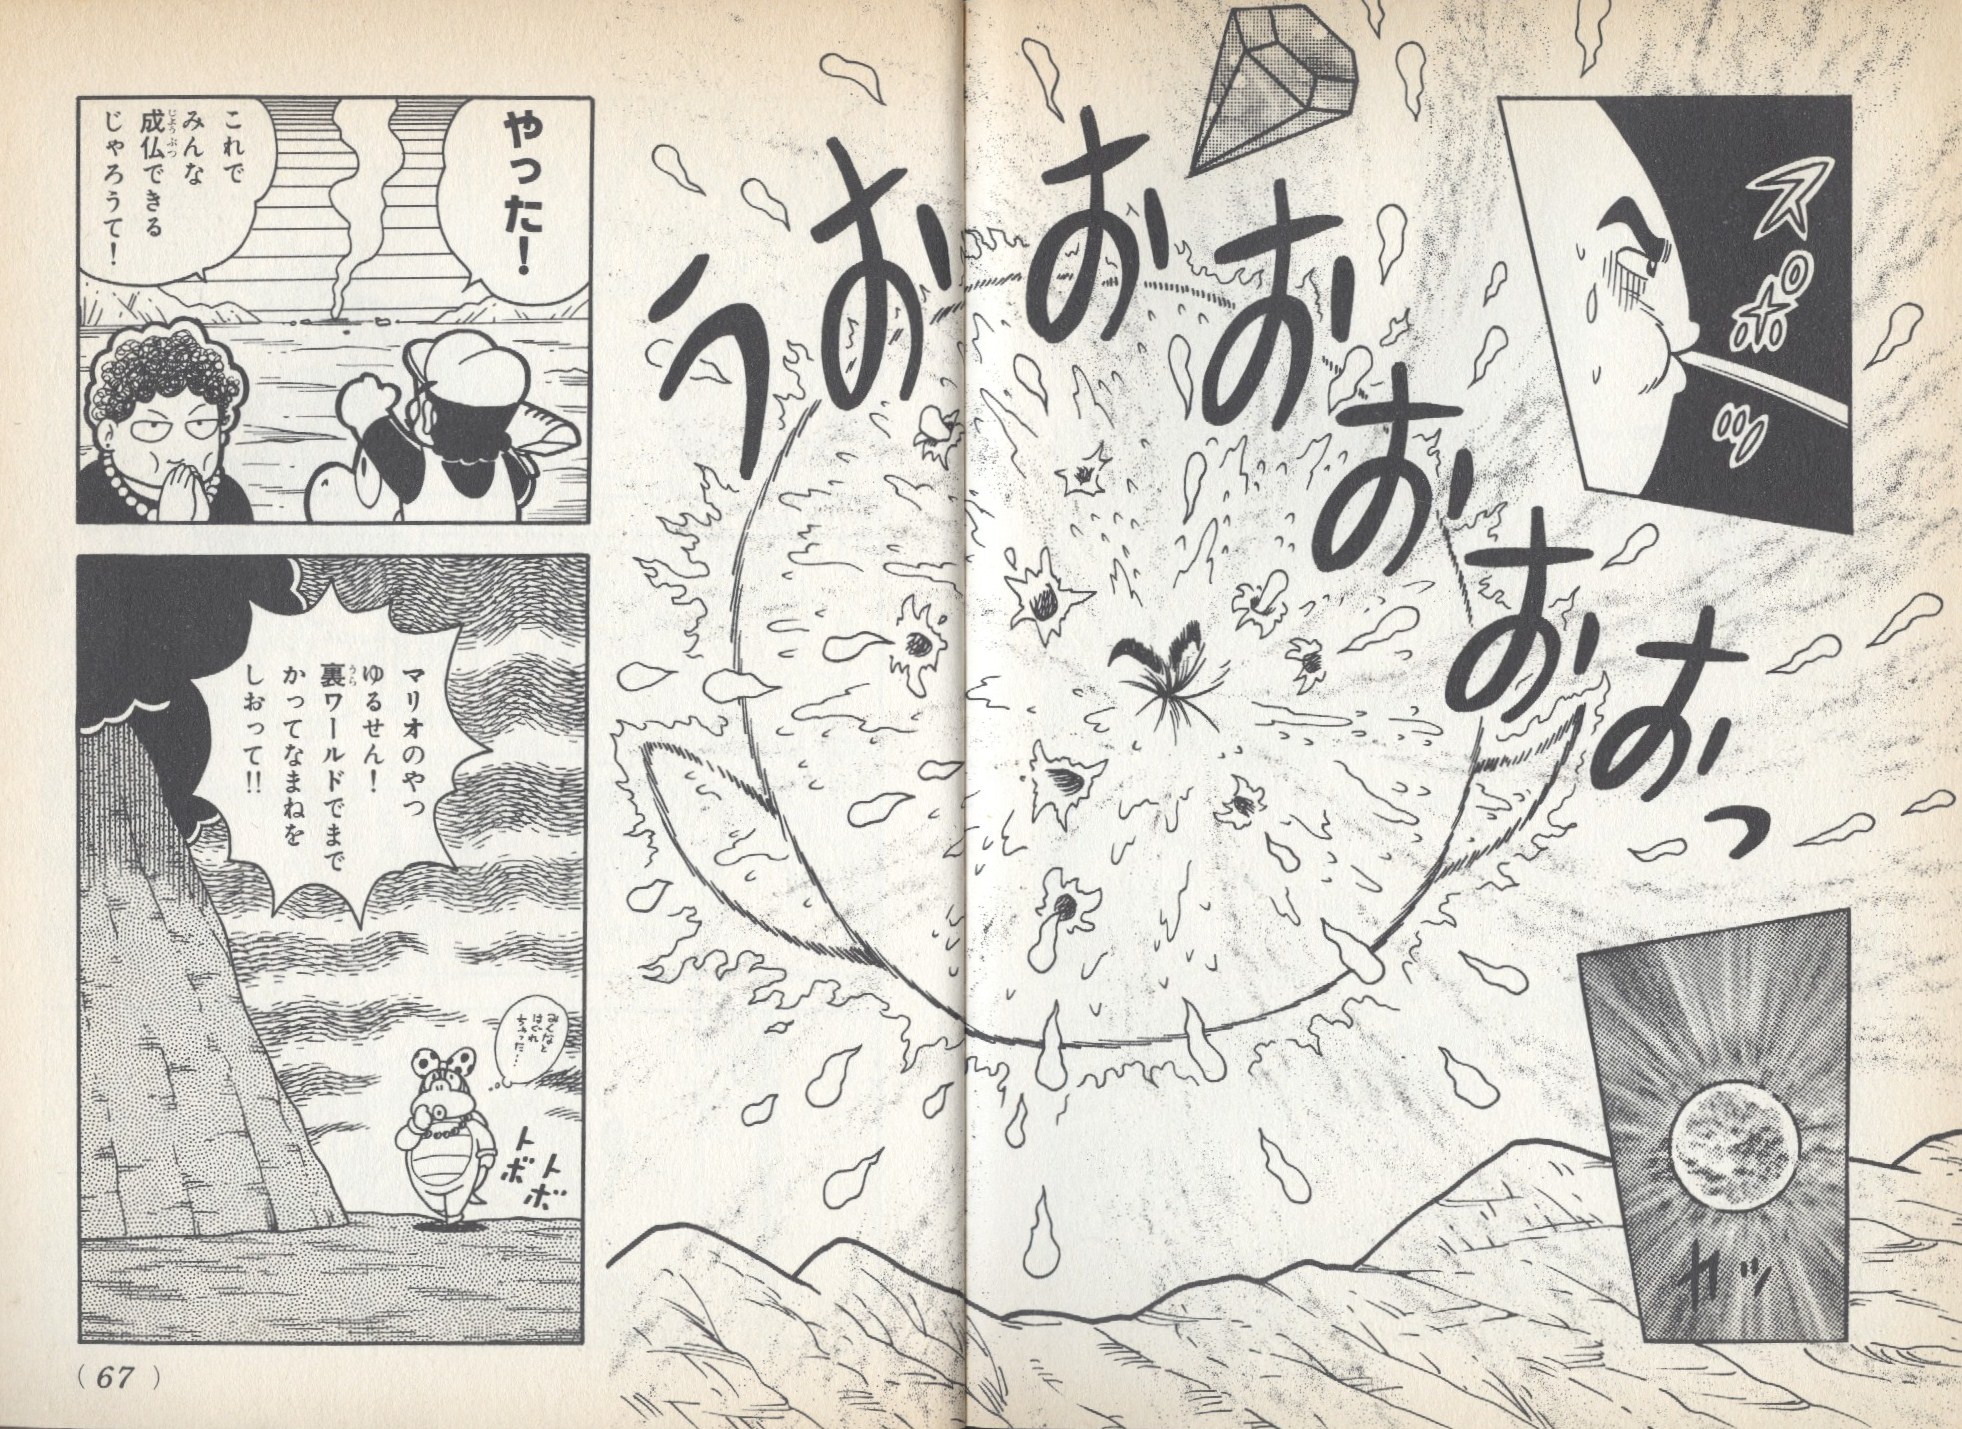 スポ
ツ
カッ
うおおおおおおっ
やった！
これで
みんな
成仏できる
じょうぶつ
じゃろうて！
マリオのやつ
ゆるせん！
裏ワールドでまで
うら
かってなまねを
しおって!!
みんなと
はぐれ
ちゃった…
トボ
トボ
(67)